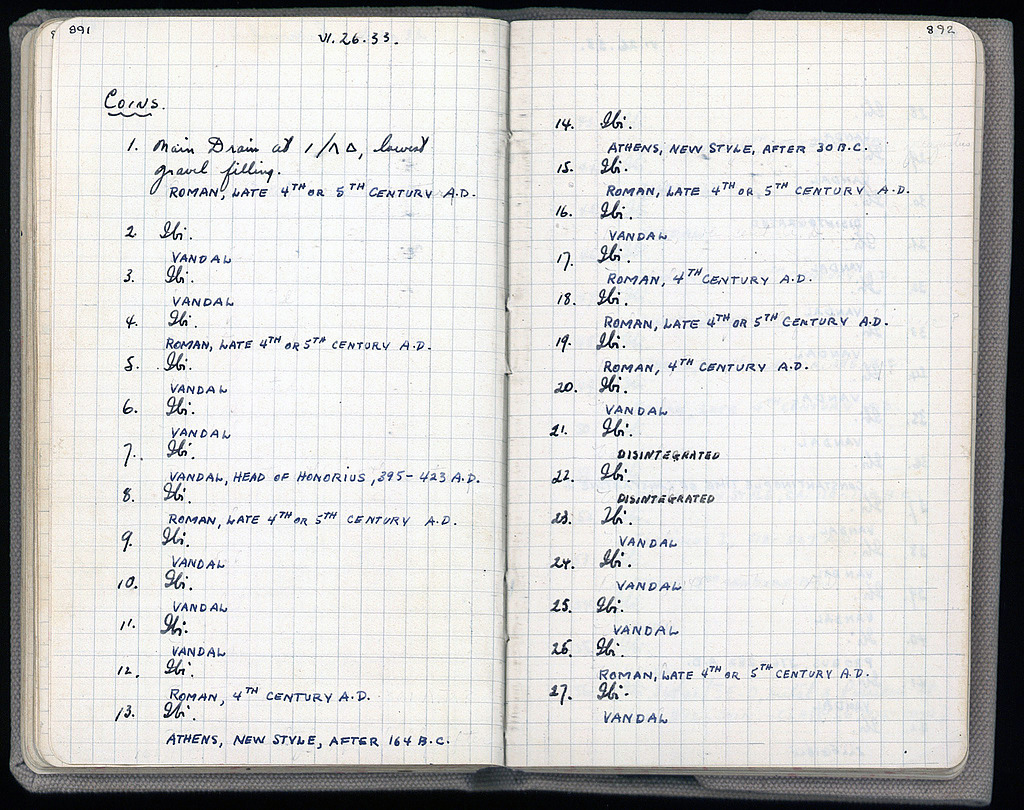 891
VI.26.33.
Coins.
1. Main Drain at 1/ΛΔ, lowest
gravel filling.
ROMAN, LATE 4TH OR 5TH CENTURY A.D.
2. Ibi.
VANDAL
3. Ibi.
VANDAL
4. Ibi.
ROMAN, LATE 4TH OR 5TH CENTURY A.D.
5. Ibi.
VANDAL
6. Ibi.
VANDAL
7. Ibi.
VANDAL, HEAD OF HONORIUS, 395-423 A.D.
8. Ibi.
ROMAN, LATE 4TH OR 5TH CENTURY A.D.
9. Ibi.
VANDAL
10. Ibi.
VANDAL
11. Ibi.
VANDAL
12. Ibi.
ROMAN, 4TH CENTURY A.D.
13. Ibi.
ATHENS, NEW STYLE, AFTER 164 B.C.
892
14. Ibi.
ATHENS, NEW STYLE, AFTER 30 B.C.
15. Ibi.
ROMAN, LATE 4TH OR 5TH CENTURY A.D.
16. Ibi.
VANDAL
17. Ibi.
ROMAN, 4TH CENTURY A.D.
18. Ibi.
ROMAN, LATE 4TH OR 5TH CENTURY A.D.
19. Ibi.
ROMAN, 4TH CENTURY A.D.
20. Ibi.
VANDAL
21. Ibi.
DISINTEGRATED
22. Ibi.
DISINTEGRATED
23. Ibi.
VANDAL
24. Ibi.
VANDAL
25. Ibi.
VANDAL
26. Ibi.
ROMAN, LATE 4TH OR 5TH CENTURY A.D.
27. Ibi.
VANDAL